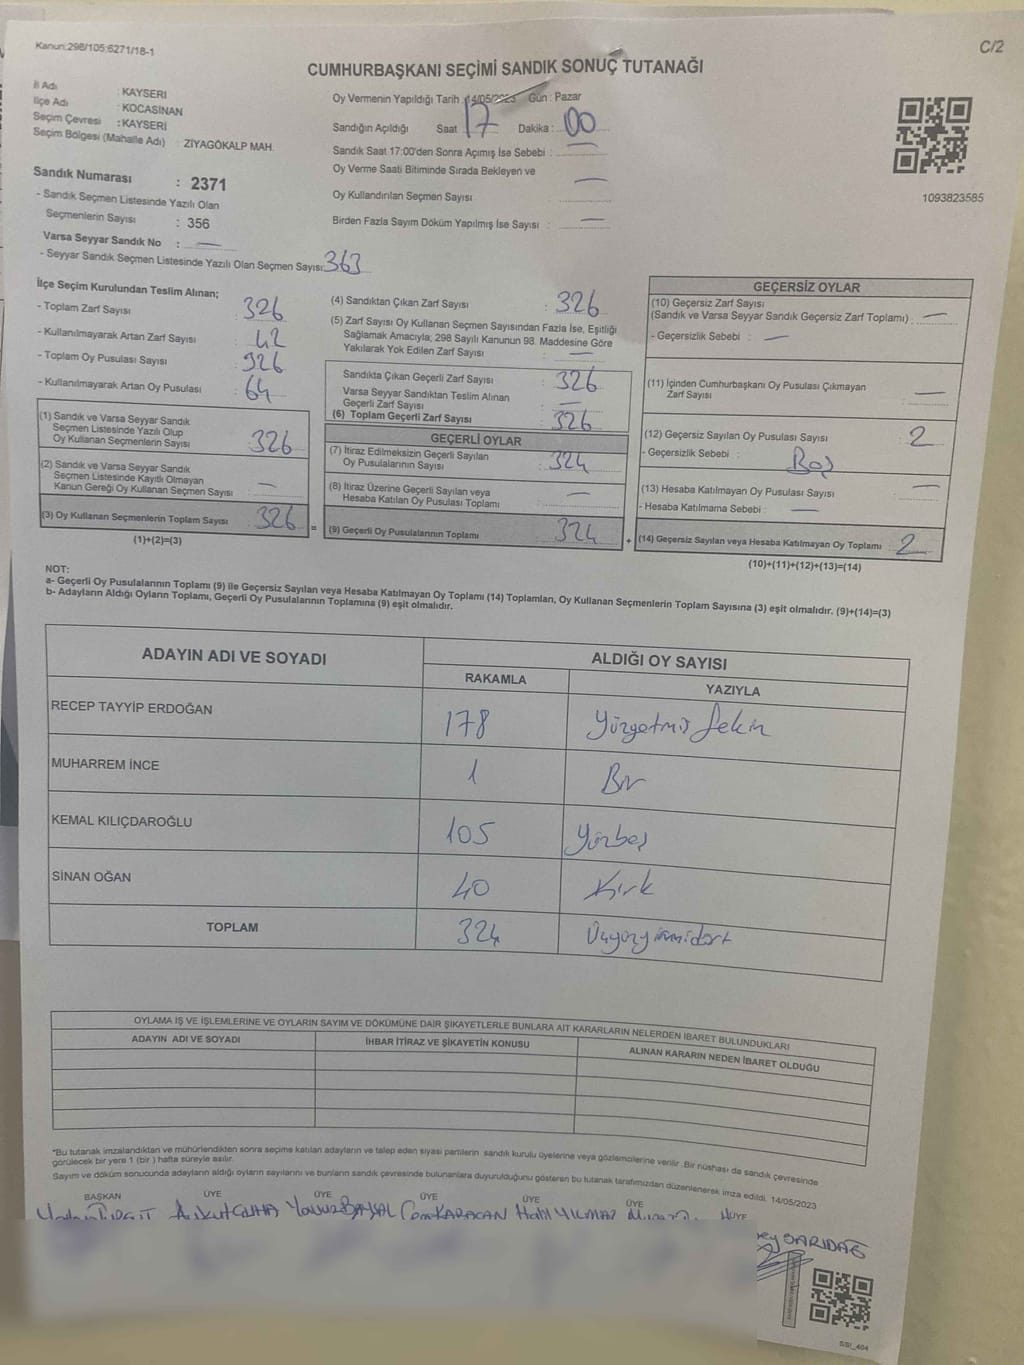 Kanun:298/105;6271/18-1
C/2
CUMHURBAŞKANI SEÇİMİ SANDIK SONUÇ TUTANAĞI
İl Adı : KAYSERİ
İlçe Adı : KOCASİNAN
Seçim Çevresi : KAYSERİ
Seçim Bölgesi (Mahalle Adı) : ZİYAGÖKALP MAH.
Sandık Numarası : 2371
- Sandık Seçmen Listesinde Yazılı Olan
Seçmenlerin Sayısı : 356
Varsa Seyyar Sandık No : —
- Seyyar Sandık Seçmen Listesinde Yazılı Olan Seçmen Sayısı: 363
Oy Vermenin Yapıldığı Tarih : 14/05/2023 Gün : Pazar
Sandığın Açıldığı Saat 17 Dakika : 00
Sandık Saat 17:00'den Sonra Açımış İse Sebebi : —
Oy Verme Saati Bitiminde Sırada Bekleyen ve
Oy Kullandırılan Seçmen Sayısı —
Birden Fazla Sayım Döküm Yapılmış İse Sayısı : —
1093823585
İlçe Seçim Kurulundan Teslim Alınan;
- Toplam Zarf Sayısı : 326
- Kullanılmayarak Artan Zarf Sayısı : 42
- Toplam Oy Pusulası Sayısı : 926
- Kullanılmayarak Artan Oy Pusulası : 64
(1) Sandık ve Varsa Seyyar Sandık
Seçmen Listesinde Yazılı Olup
Oy Kullanan Seçmenlerin Sayısı : 326
(2) Sandık ve Varsa Seyyar Sandık
Seçmen Listesinde Kayıtlı Olmayan
Kanun Gereği Oy Kullanan Seçmen Sayısı : —
(3) Oy Kullanan Seçmenlerin Toplam Sayısı : 326
(1)+(2)=(3)
(4) Sandıktan Çıkan Zarf Sayısı : 326
(5) Zarf Sayısı Oy Kullanan Seçmen Sayısından Fazla İse, Eşitliği
Sağlamak Amacıyla; 298 Sayılı Kanunun 98. Maddesine Göre
Yakılarak Yok Edilen Zarf Sayısı : —
Sandıkta Çıkan Geçerli Zarf Sayısı : 326
Varsa Seyyar Sandıktan Teslim Alınan
Geçerli Zarf Sayısı : —
(6) Toplam Geçerli Zarf Sayısı : 326
GEÇERLİ OYLAR
(7) İtiraz Edilmeksizin Geçerli Sayılan
Oy Pusulalarının Sayısı : 324
(8) İtiraz Üzerine Geçerli Sayılan veya
Hesaba Katılan Oy Pusulası Toplamı : —
= (9) Geçerli Oy Pusulalarının Toplamı : 324
GEÇERSİZ OYLAR
(10) Geçersiz Zarf Sayısı
(Sandık ve Varsa Seyyar Sandık Geçersiz Zarf Toplamı) : —
- Geçersizlik Sebebi : —
(11) İçinden Cumhurbaşkanı Oy Pusulası Çıkmayan
Zarf Sayısı : —
(12) Geçersiz Sayılan Oy Pusulası Sayısı : 2
- Geçersizlik Sebebi : Boş
(13) Hesaba Katılmayan Oy Pusulası Sayısı : —
- Hesaba Katılmama Sebebi : —
+ (14) Geçersiz Sayılan veya Hesaba Katılmayan Oy Toplamı : 2
(10)+(11)+(12)+(13)=(14)
NOT:
a- Geçerli Oy Pusulalarının Toplamı (9) ile Geçersiz Sayılan veya Hesaba Katılmayan Oy Toplamı (14) Toplamları, Oy Kullanan Seçmenlerin Toplam Sayısına (3) eşit olmalıdır. (9)+(14)=(3)
b- Adayların Aldığı Oyların Toplamı, Geçerli Oy Pusulalarının Toplamına (9) eşit olmalıdır.
ADAYIN ADI VE SOYADI ALDIĞI OY SAYISI
RAKAMLA YAZIYLA
RECEP TAYYİP ERDOĞAN 178 Yüzyetmiş sekin
MUHARREM İNCE 1 Bir
KEMAL KILIÇDAROĞLU 105 Yüzbeş
SİNAN OĞAN 40 Kırk
TOPLAM 324 Üçyüzyirmidört
OYLAMA İŞ VE İŞLEMLERİNE VE OYLARIN SAYIM VE DÖKÜMÜNE DAİR ŞİKAYETLERLE BUNLARA AİT KARARLARIN NELERDEN İBARET BULUNDUKLARI
ADAYIN ADI VE SOYADI İHBAR İTİRAZ VE ŞİKAYETİN KONUSU ALINAN KARARIN NEDEN İBARET OLDUĞU
*Bu tutanak imzalandıktan ve mühürlendikten sonra seçime katılan adayların ve talep eden siyasi partilerin sandık kurulu üyelerine veya gözlemcilerine verilir. Bir nüshası da sandık çevresinde
görülecek bir yere 1 (bir) hafta süreyle asılır.
Sayım ve döküm sonucunda adayların aldığı oyların sayılarını ve bunların sandık çevresinde bulunanlara duyurulduğunu gösteren bu tutanak tarafımızdan düzenlenerek imza edildi. 14/05/2023
BAŞKAN ÜYE ÜYE ÜYE ÜYE ÜYE ÜYE
Yavuz BAYSAL Cem KARACAN Halil YILMAZ
SARIDAĞ
SSI_404